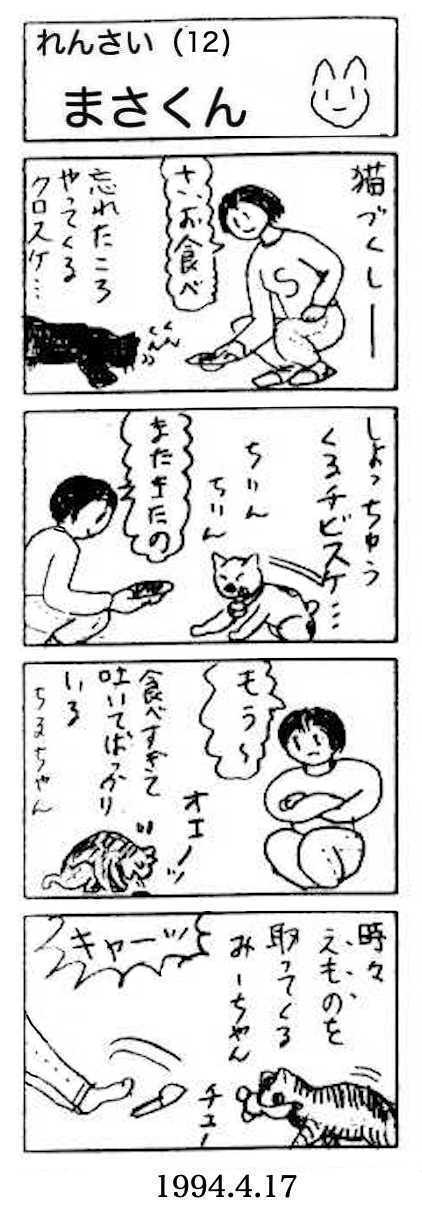 れんさい（12）
まさくん
猫づくしー
さ、お食べ
忘れたころ
やってくる
クロスケ…
くん
くん
しょっちゅう
くるチビスケ…
ちりん
ちりん
またきたの
もう〜
食べすぎて
吐いてばっかり
いる
ちるちゃん
オエーッ
時々
えものを
取ってくる
みーちゃん
キャーッ
チュー
1994.4.17